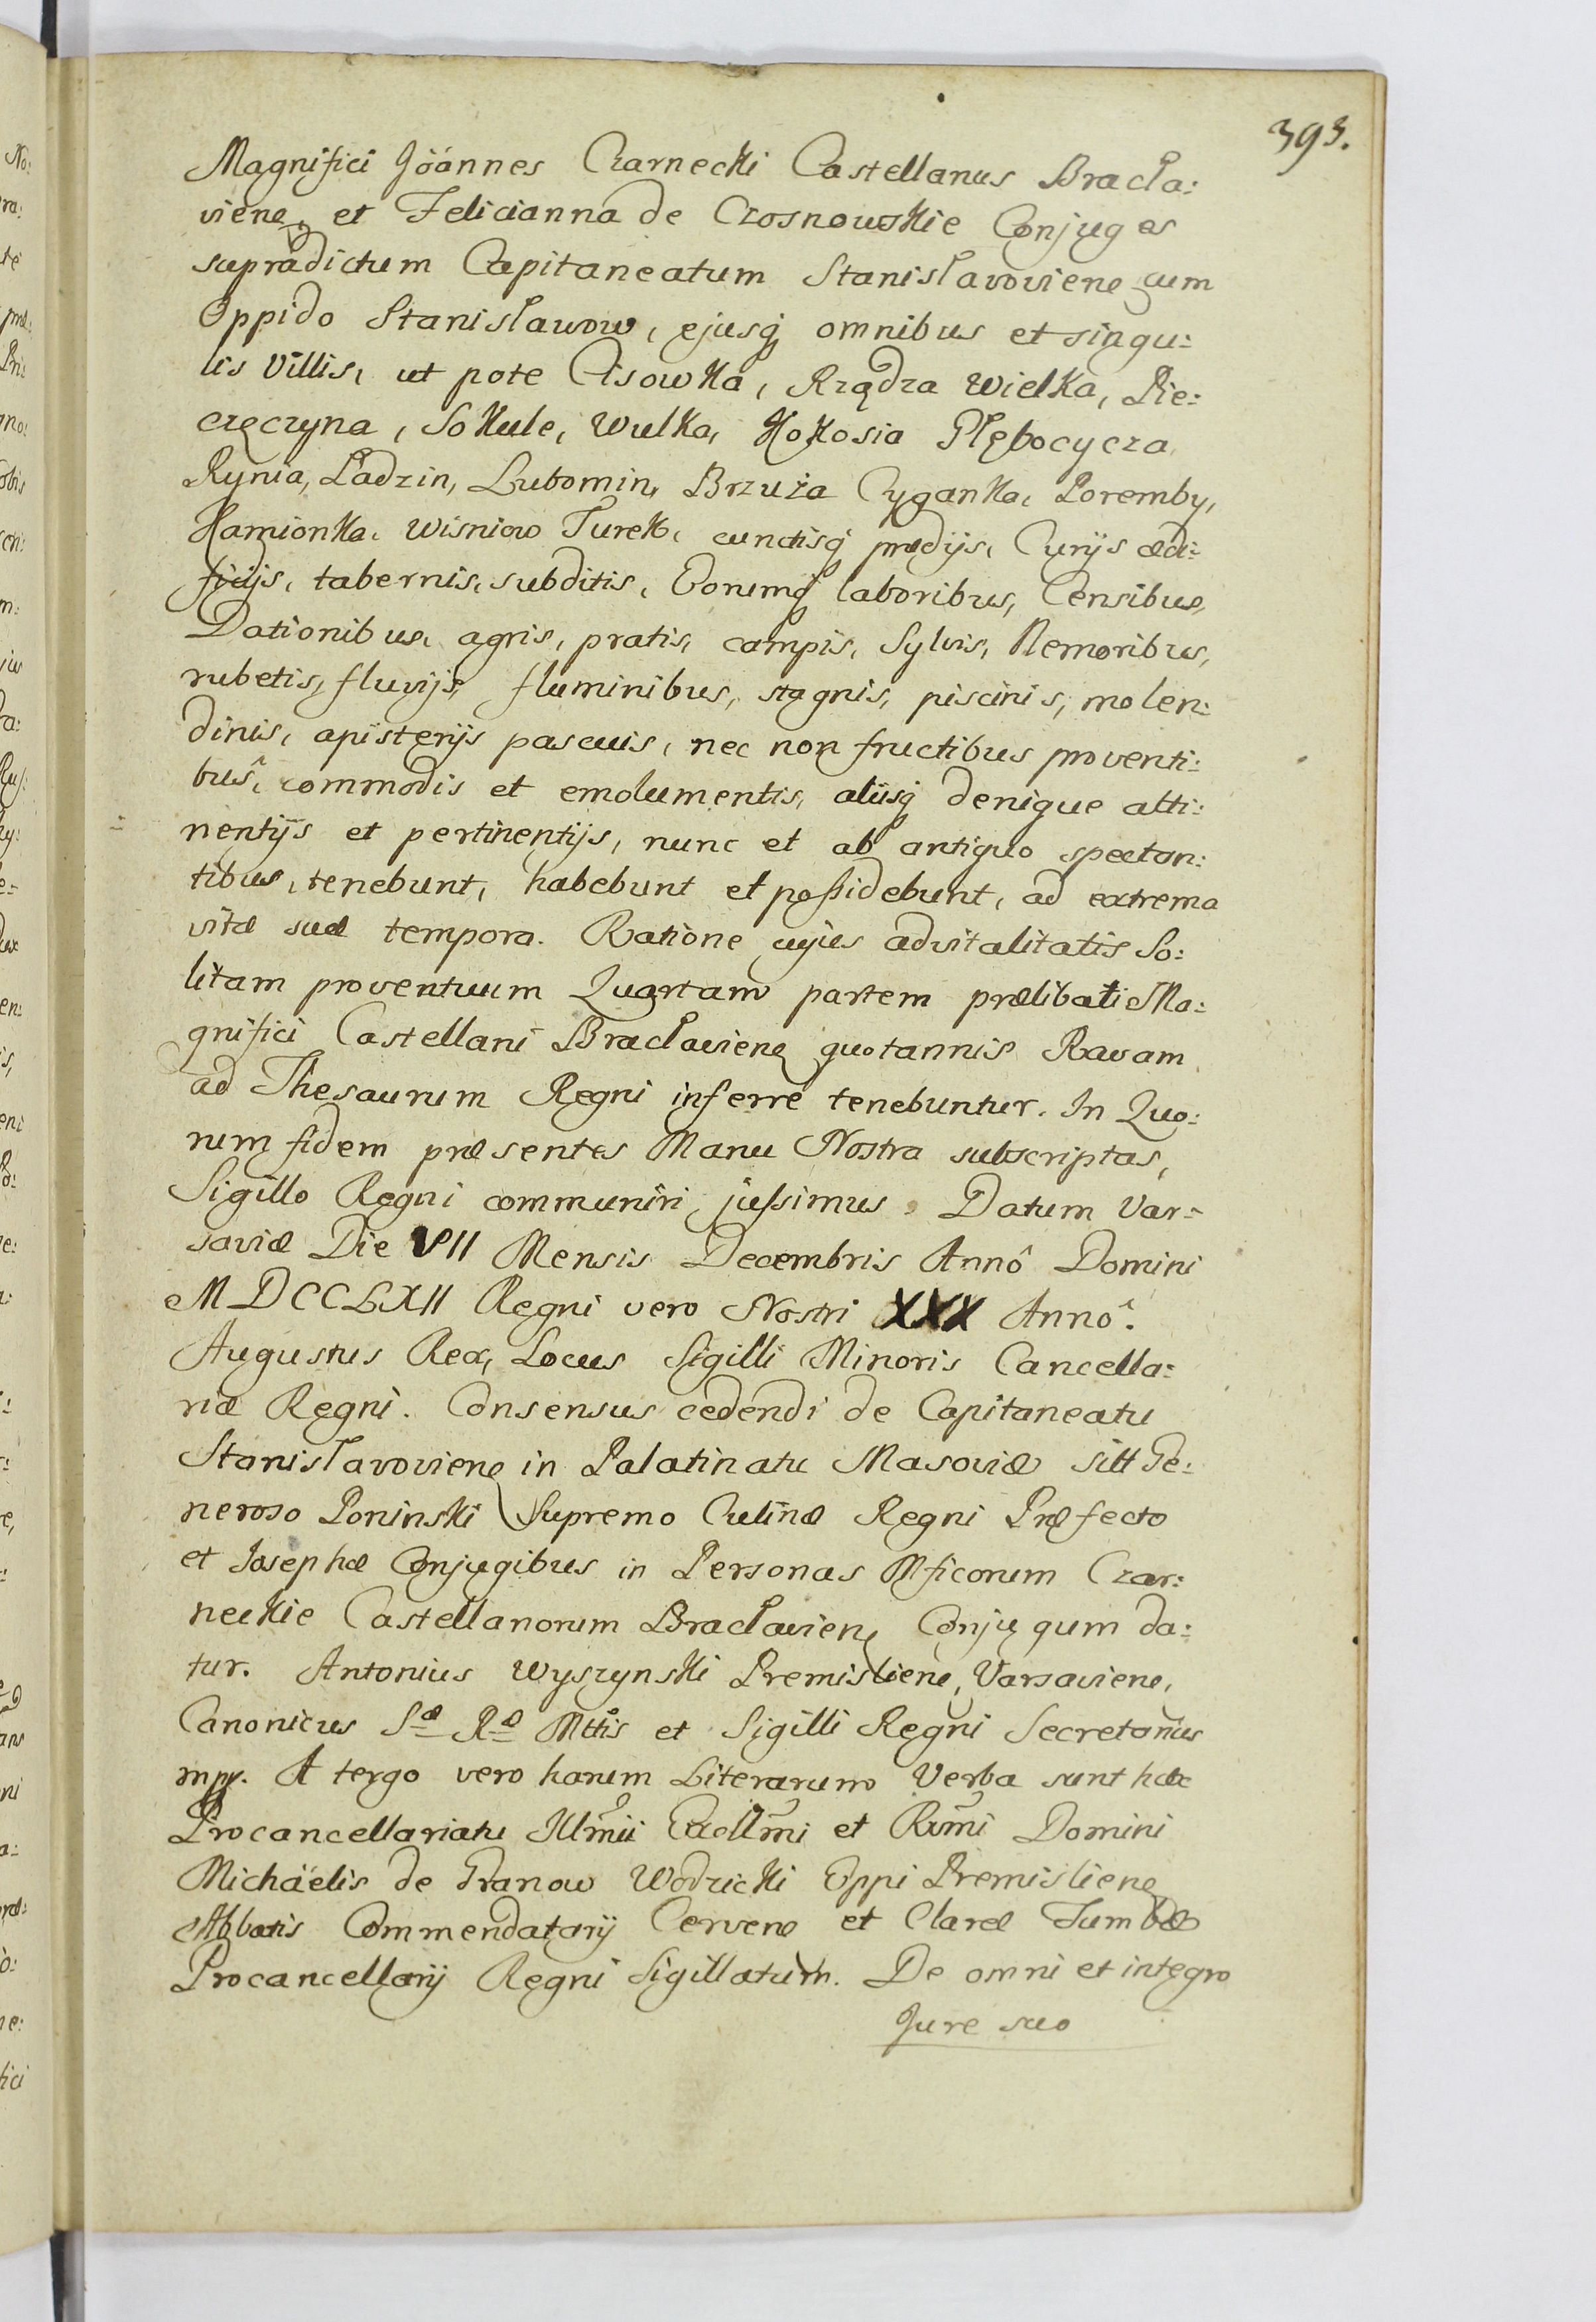 393.
Magnifici Joánnes Czarnecki Castellanus Bracła:
vieneֽ et Felicianna de Czosnowskie Conjuges
supradictum Capitaneatum Stanisłavoviene cum
Oppido Stanisławow, ejusq omnibus et singu:
lis Villis, ut pote Cisowka, Rządza Wielka, Pie:
częczyna, Sokule, Wulka, Kokosia Głębocycza
Rynia, Ladzin, Lubomin, Brzuża Cyganka, Poremby,
Kamionka, Wisniow Turek, cunctisq prædijs, Curijs ædi:
ficijs, tabernis, subditis, Eorumq laboribus, Censibus,
Dationibus, agris, pratis, campis, Sylvis, Nemoribus,
rubetis, fluvijs, fluminibus, stagnis, piscinis, molen:
dinis, apisterijs pascuis, nec non fructibus proventi:
bus, commodis et emolumentis, aliisq denique atti:
nentijs et pertinentijs, nunc et ab antiquo spectan:
tibus, tenebunt, habebunt et possidebunt, ad extrema
vitæ suæ tempora. Ratione cujus advitalitatis So:
litam proventuum Quartam partem prælibati Ma:
gnifici Castellani Bracłaviene quotannis Ravam
ad Thesaurum Regni inferre tenebuntur. In Quo:
rum fidem præsentes Manu Nostra subscriptas,
Sigillo Regni communiri jussimus. Datum Var:
saviæ Die VII Mensis Decembris Annô Domini
MDCCLXII Regni vero Nostri XXX Annô.
Augustus Rex, Locus Sigilli Minoris Cancella:
riæ Regni. Consensus cedendi de Capitaneatu
Stanisłavoviene in Palatinatu Masoviæ sitt Ge:
neroso Poninski Supremo Culinæ Regni Præfecto
et Josephæ Conjugibus in Personas Mficorum Czar:
neckie Castellanorum Bracłaviene Conjugum da:
tur. Antonius Wyszynski Premisliene, Varsaviene,
Canonicus Sæ Ræ Mttis et Sigilli Regni Secretarius
mpp. A tergo vero harum Literarum Verba sunt hæc
Procancellariatu Illmii Excllmi et Rvmi Domini
Michäelis de Granow Wodzicki Eppi Premisliene
Abbatis Commendatarij Cervene et Claræ Tumbæ
Procancellarij Regni Sigillatum. De omni et integro
Jure suo